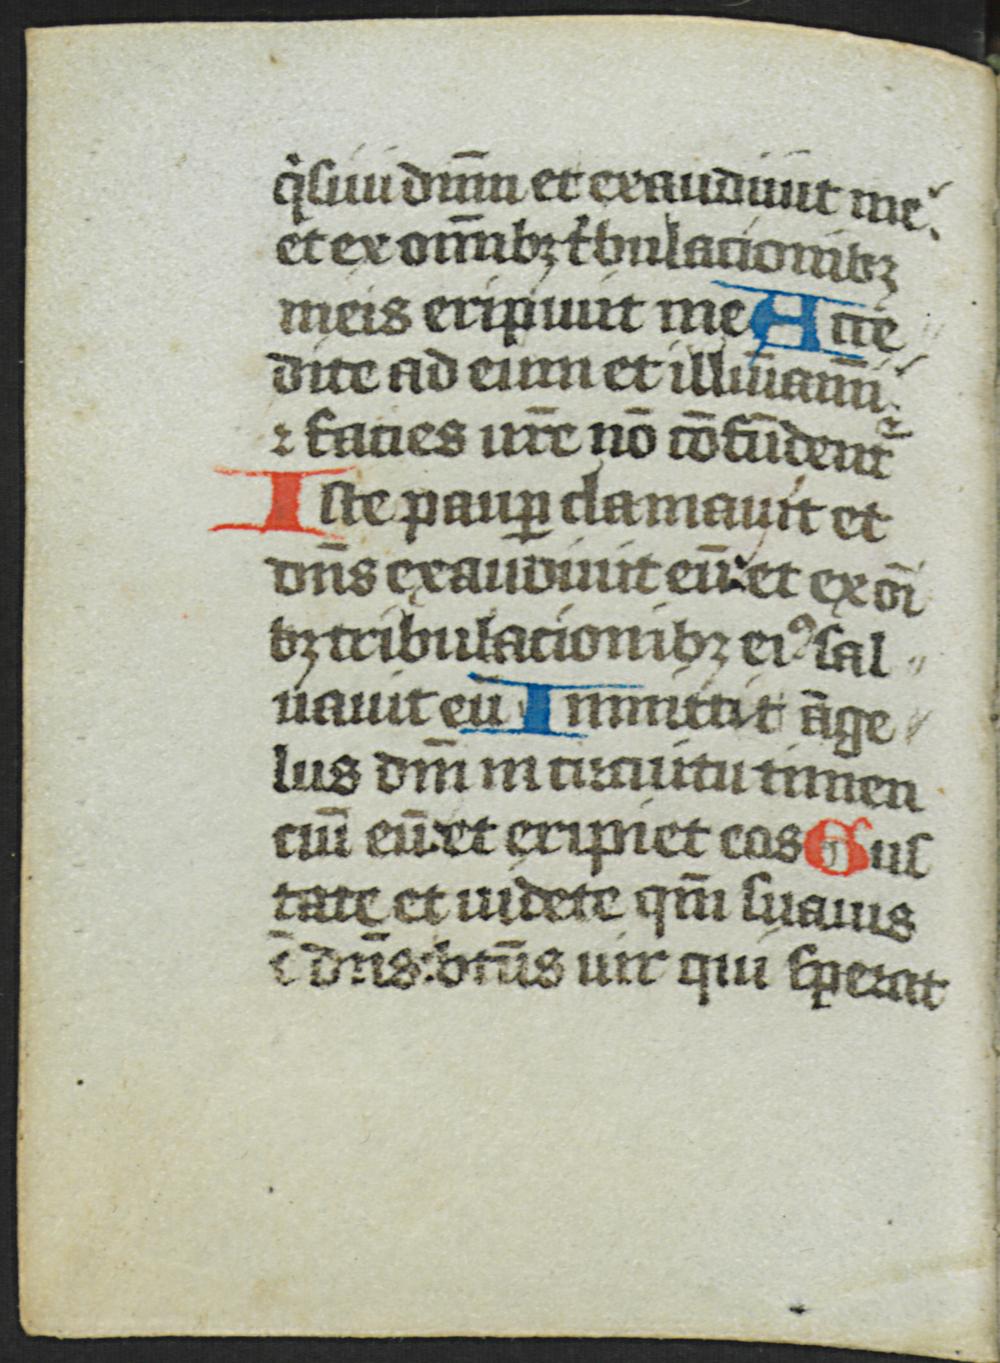 q̇siui dnm̄ et exaudiuit me⹎
et ex om̄ibꝫ t̾bulacionibꝫ
meis eripuit me Acce
dite ad eum et illumām̄i⹎
⁊ facies ur̄e nō cōfūdent᷑
Iste paup̲ clamauit et
dn̄s exaudiuit eū: et ex oī
bꝫ tribulacionibꝫ eiꝰ sal
uauit eū Inmittit āge
lus dnī in circuitu timen
ciū eū: et eripiet eos Gus
tate et uidete qm̄ suauis
ē dn̄s: btūs uir qui sperat